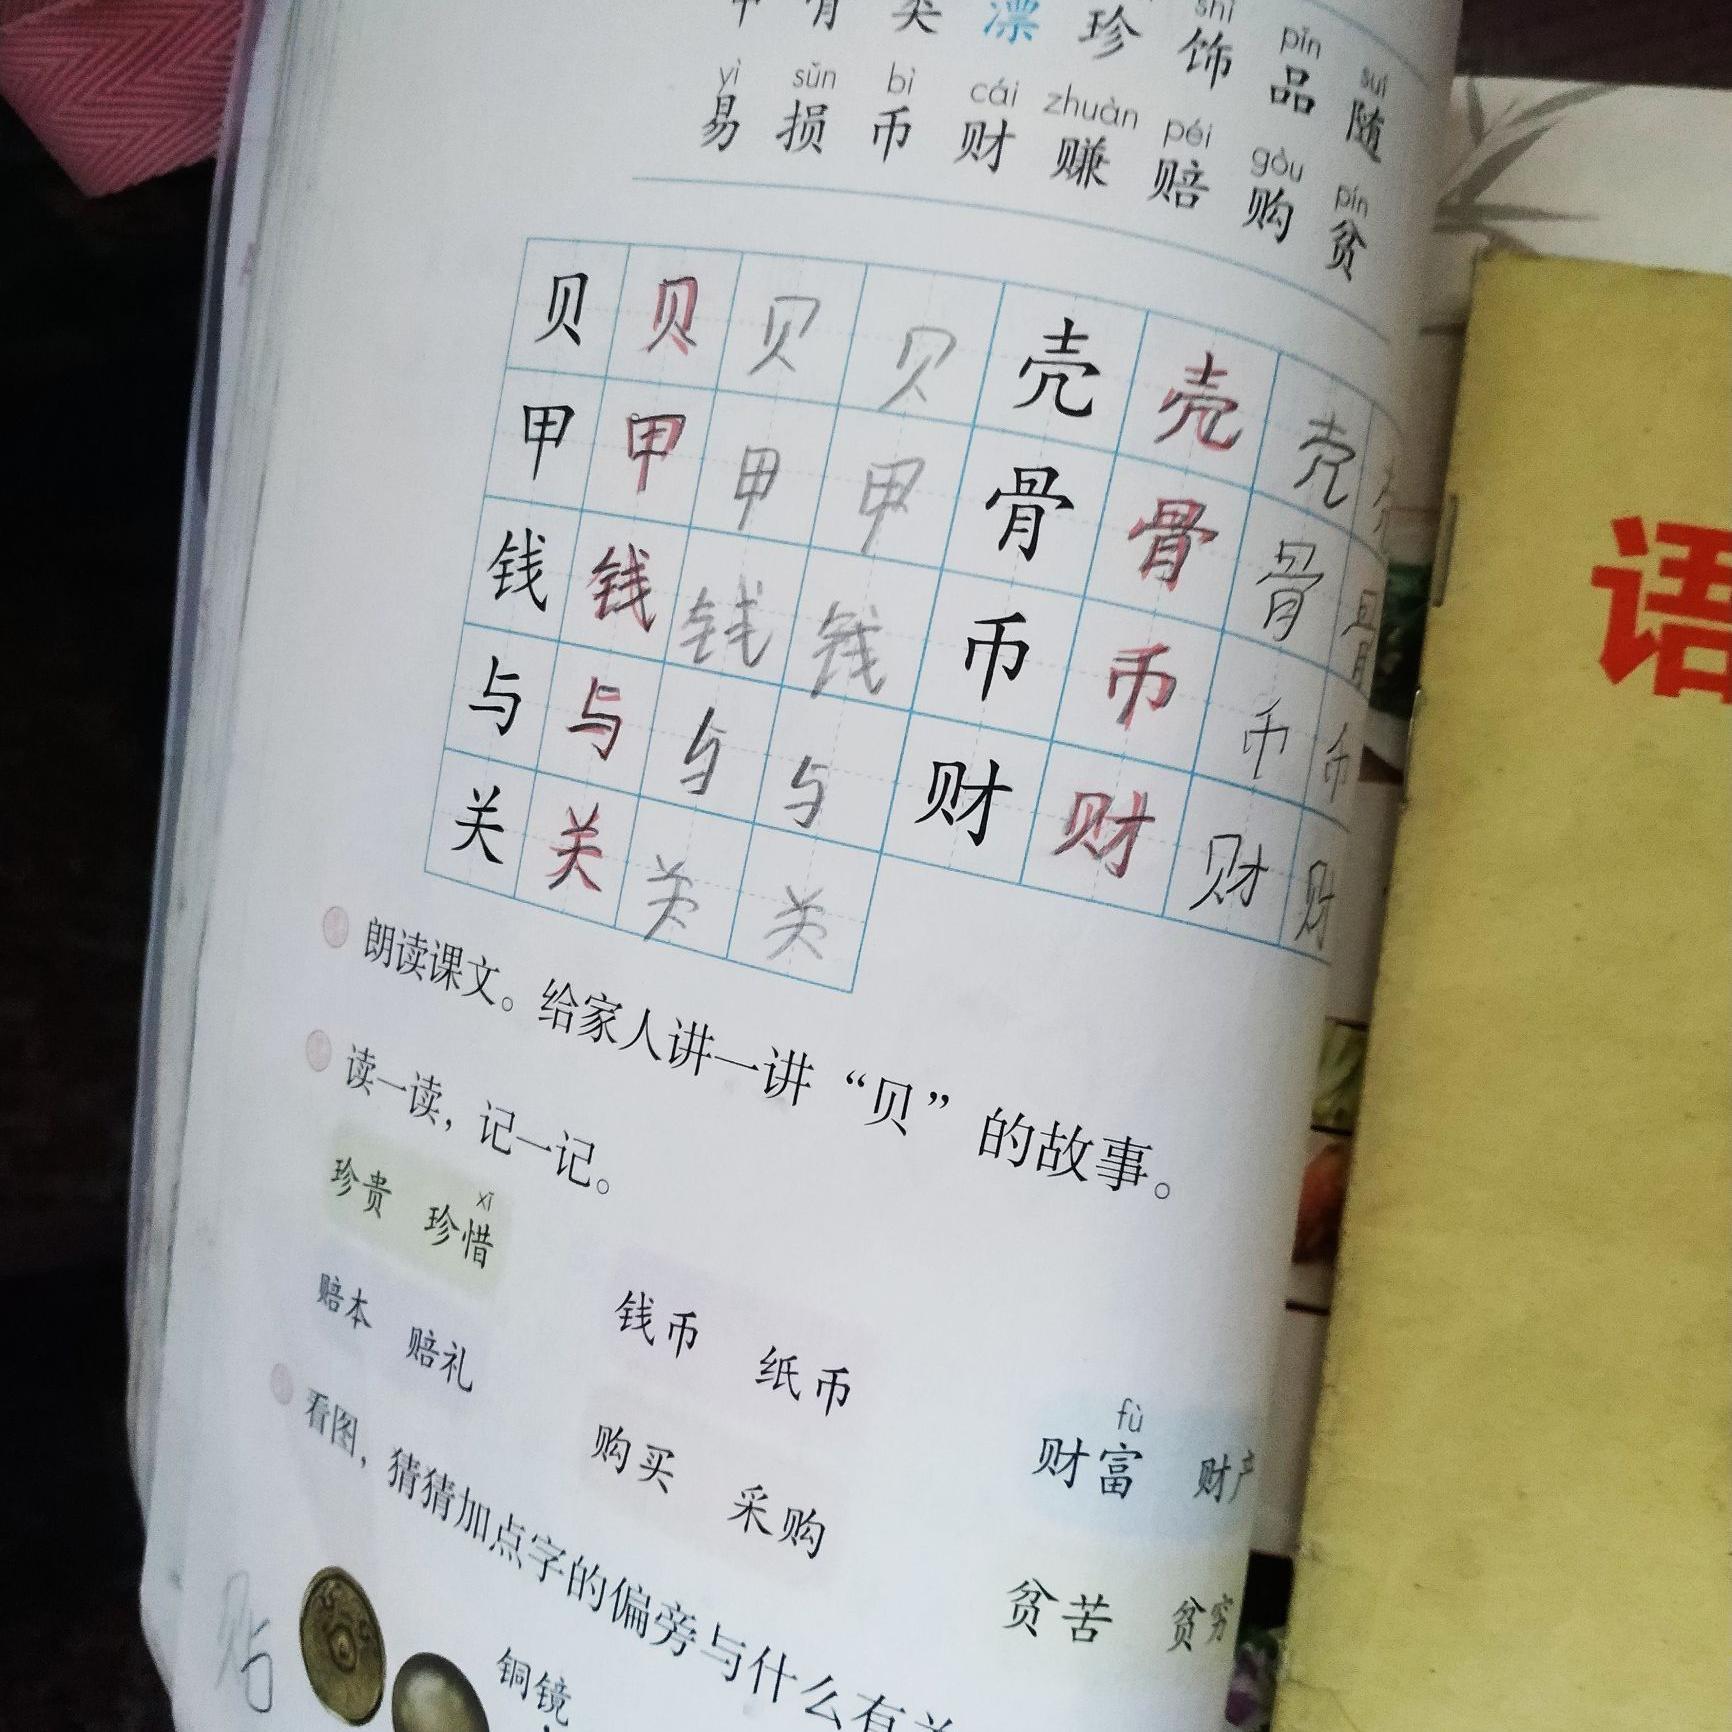 甲 骨 类 漂 珍 饰 品 随
shì pǐn suí
yì sǔn bì cái zhuàn péi gòu pín
易 损 币 财 赚 赔 购 贫
贝 贝 贝 贝 壳 壳 壳
甲 甲 甲 甲 骨 骨 骨 骨
钱 钱 钱 钱 币 币 币 币
与 与 与 与 财 财 财 财
关 关 关 关
朗读课文。给家人讲一讲“贝”的故事。
读一读，记一记。
xī fù
珍贵 珍惜 钱币 纸币 财富 财产
赔本 赔礼 购买 采购 贫苦 贫穷
看图，猜猜加点字的偏旁与什么有关
铜镜
贴
语